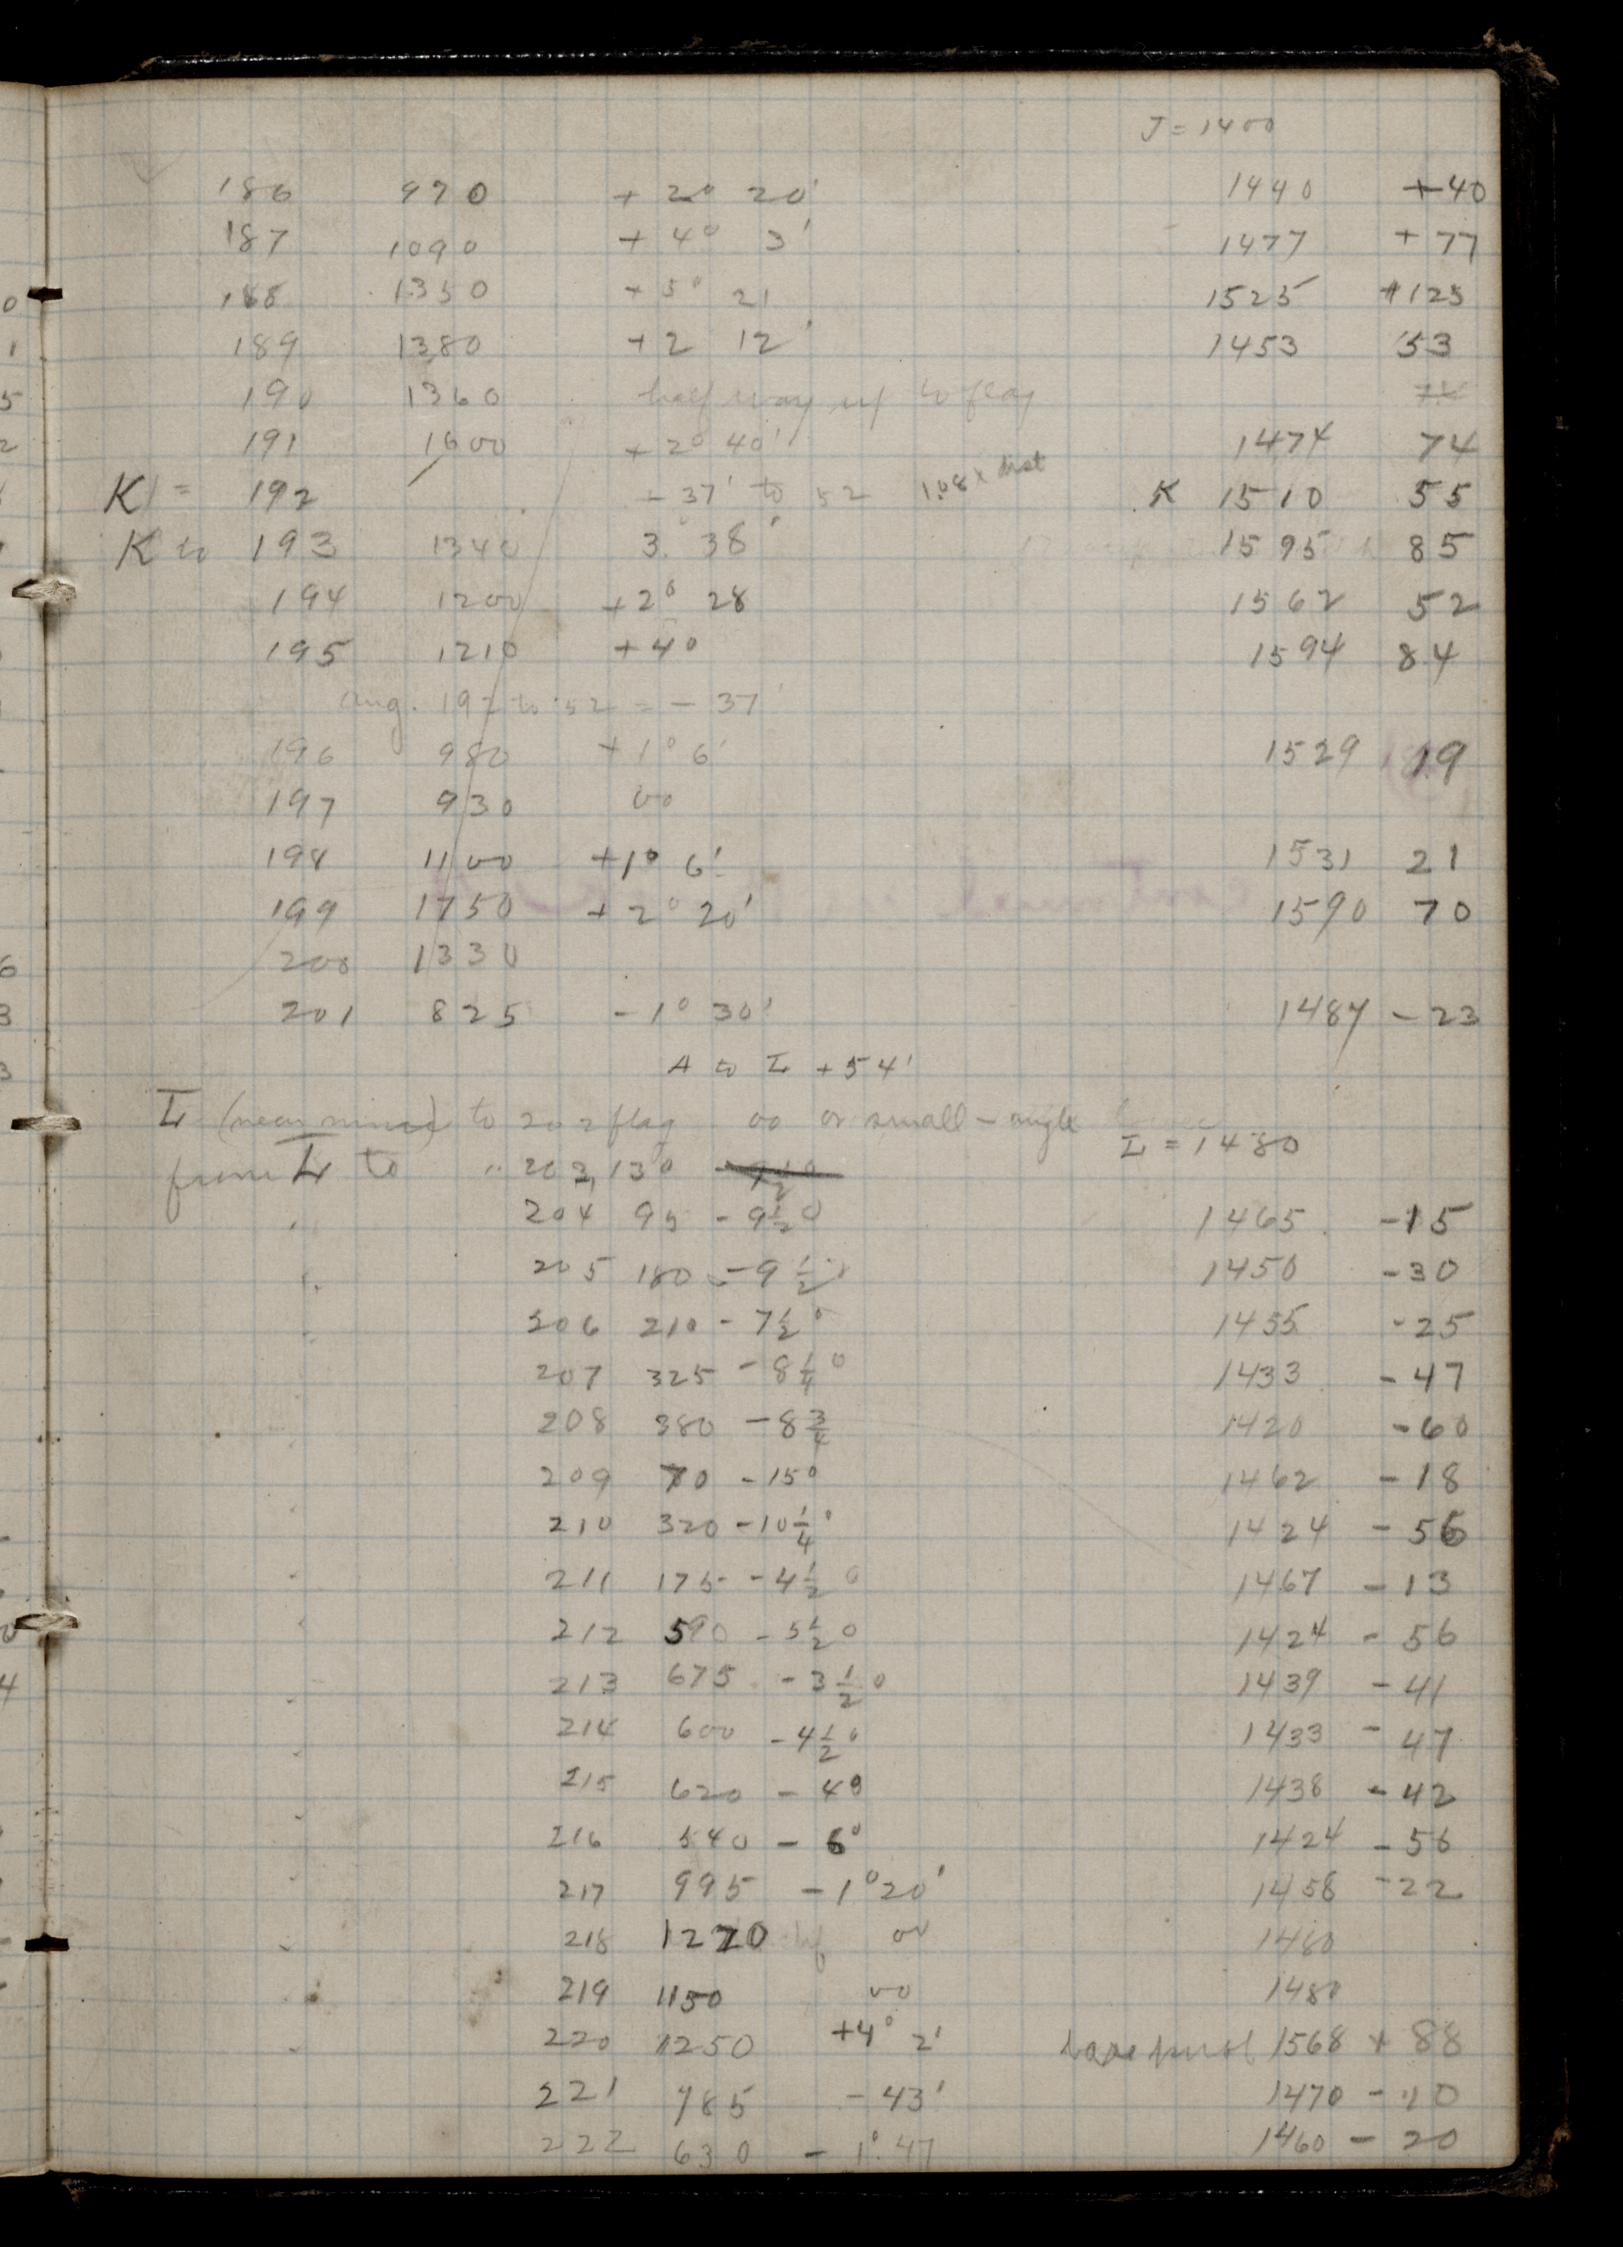 J = 1400
186 970 + 2° 20' 1440 +40
187 1090 + 4° 3' 1477 + 77
188 1350 + 5° 21 1525 +125
189 1380 + 2 12' 1453 53
190 1360 half way up to flag
191 1600 + 2° 40' 1474 74
K = 192 - 37' to 52 1.08 x dist K 1510 55
K to 193 1340 3° 38' 1595 85
194 1200 +2° 28 1562 52
195 1210 +4° 1594 84
ang. 192 to 52 = - 37'
196 980 +1° 6' 1529 19
197 930 00
198 1100 +1° 6' 1531 21
199 1750 + 2° 20' 1590 70
200 1330
201 825 - 1° 30' 1487 - 23
A to L + 54'
L (near mine) to 202 flag 00 or small - angle
L = 1480
from L to " 203, 130
204 95 - 9½° 1465 -15
205 180 - 9½° 1450 -30
206 210 - 7½° 1455 -25
207 325 - 8¼° 1433 - 47
208 380 - 8¾ 1420 -60
209 70 - 15° 1462 - 18
210 320 - 10¼° 1424 - 56
211 175 - 4½° 1467 - 13
212 590 - 5½° 1424 - 56
213 675 - 3½° 1439 - 41
214 600 - 4½° 1433 - 47
215 620 - 4° 1438 - 42
216 540 - 6° 1424 - 56
217 995 - 1° 20' 1458 - 22
218 1270 00 1480
219 1150 00 1480
220 1250 +4° 2' 1568 + 88
221 785 - 43' 1470 - 10
222 630 - 1° 47 1460 - 20